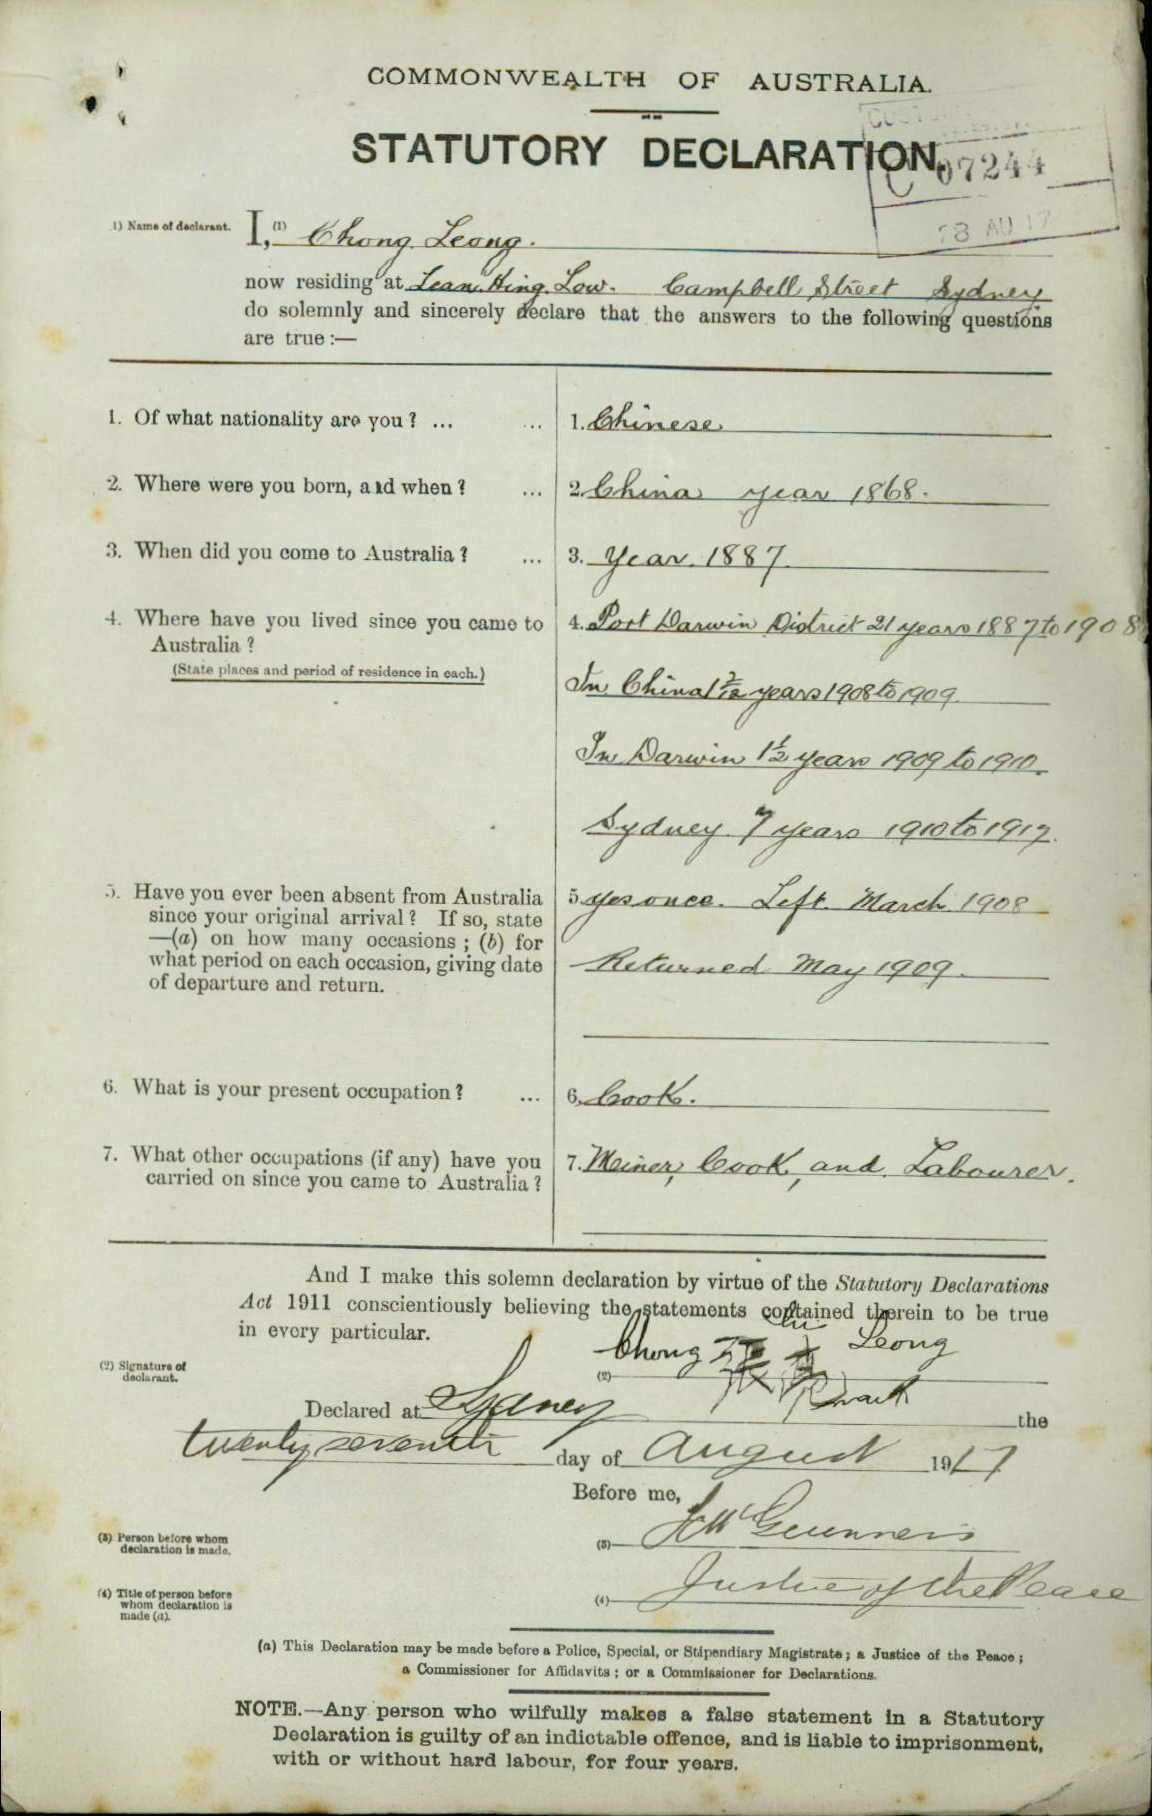 COMMONWEALTH OF AUSTRALIA.
STATUTORY DECLARATION.
C 07244
28 AU 17
1) Name of declarant. I, (1) Chong Leong.
now residing at Lean Hing Low. Campbell Street Sydney
do solemnly and sincerely declare that the answers to the following questions
are true :—
1. Of what nationality are you ? ... ... 1. Chinese
2. Where were you born, and when ? ... 2. China year 1868.
3. When did you come to Australia ? ... 3. Year. 1887.
4. Where have you lived since you came to 4. Port Darwin District 21 years 1887 to 1908
Australia ?
(State places and period of residence in each.)
In China 1 2/12 years 1908 to 1909.
In Darwin 1½ years 1909 to 1910.
Sydney 7 years 1910 to 1917.
5. Have you ever been absent from Australia 5. yes once. Left March 1908
since your original arrival ? If so, state
—(a) on how many occasions ; (b) for
what period on each occasion, giving date Returned May 1909.
of departure and return.
6. What is your present occupation ? ... 6. Cook.
7. What other occupations (if any) have you 7. Meiner, Cook, and Labourer.
carried on since you came to Australia ?
And I make this solemn declaration by virtue of the Statutory Declarations
Act 1911 conscientiously believing the statements contained therein to be true
in every particular.
(2) Signature of
declarant.
Chong Leong
(2)
Declared at Sydney the
twenty seventh day of August 1917
Before me,
(3) Person before whom
declaration is made.
(3)
(4) Title of person before
whom declaration is
made (a).
(4) Justice of the Peace
(a) This Declaration may be made before a Police, Special, or Stipendiary Magistrate ; a Justice of the Peace ;
a Commissioner for Affidavits ; or a Commissioner for Declarations.
NOTE.—Any person who wilfully makes a false statement in a Statutory
Declaration is guilty of an indictable offence, and is liable to imprisonment,
with or without hard labour, for four years.